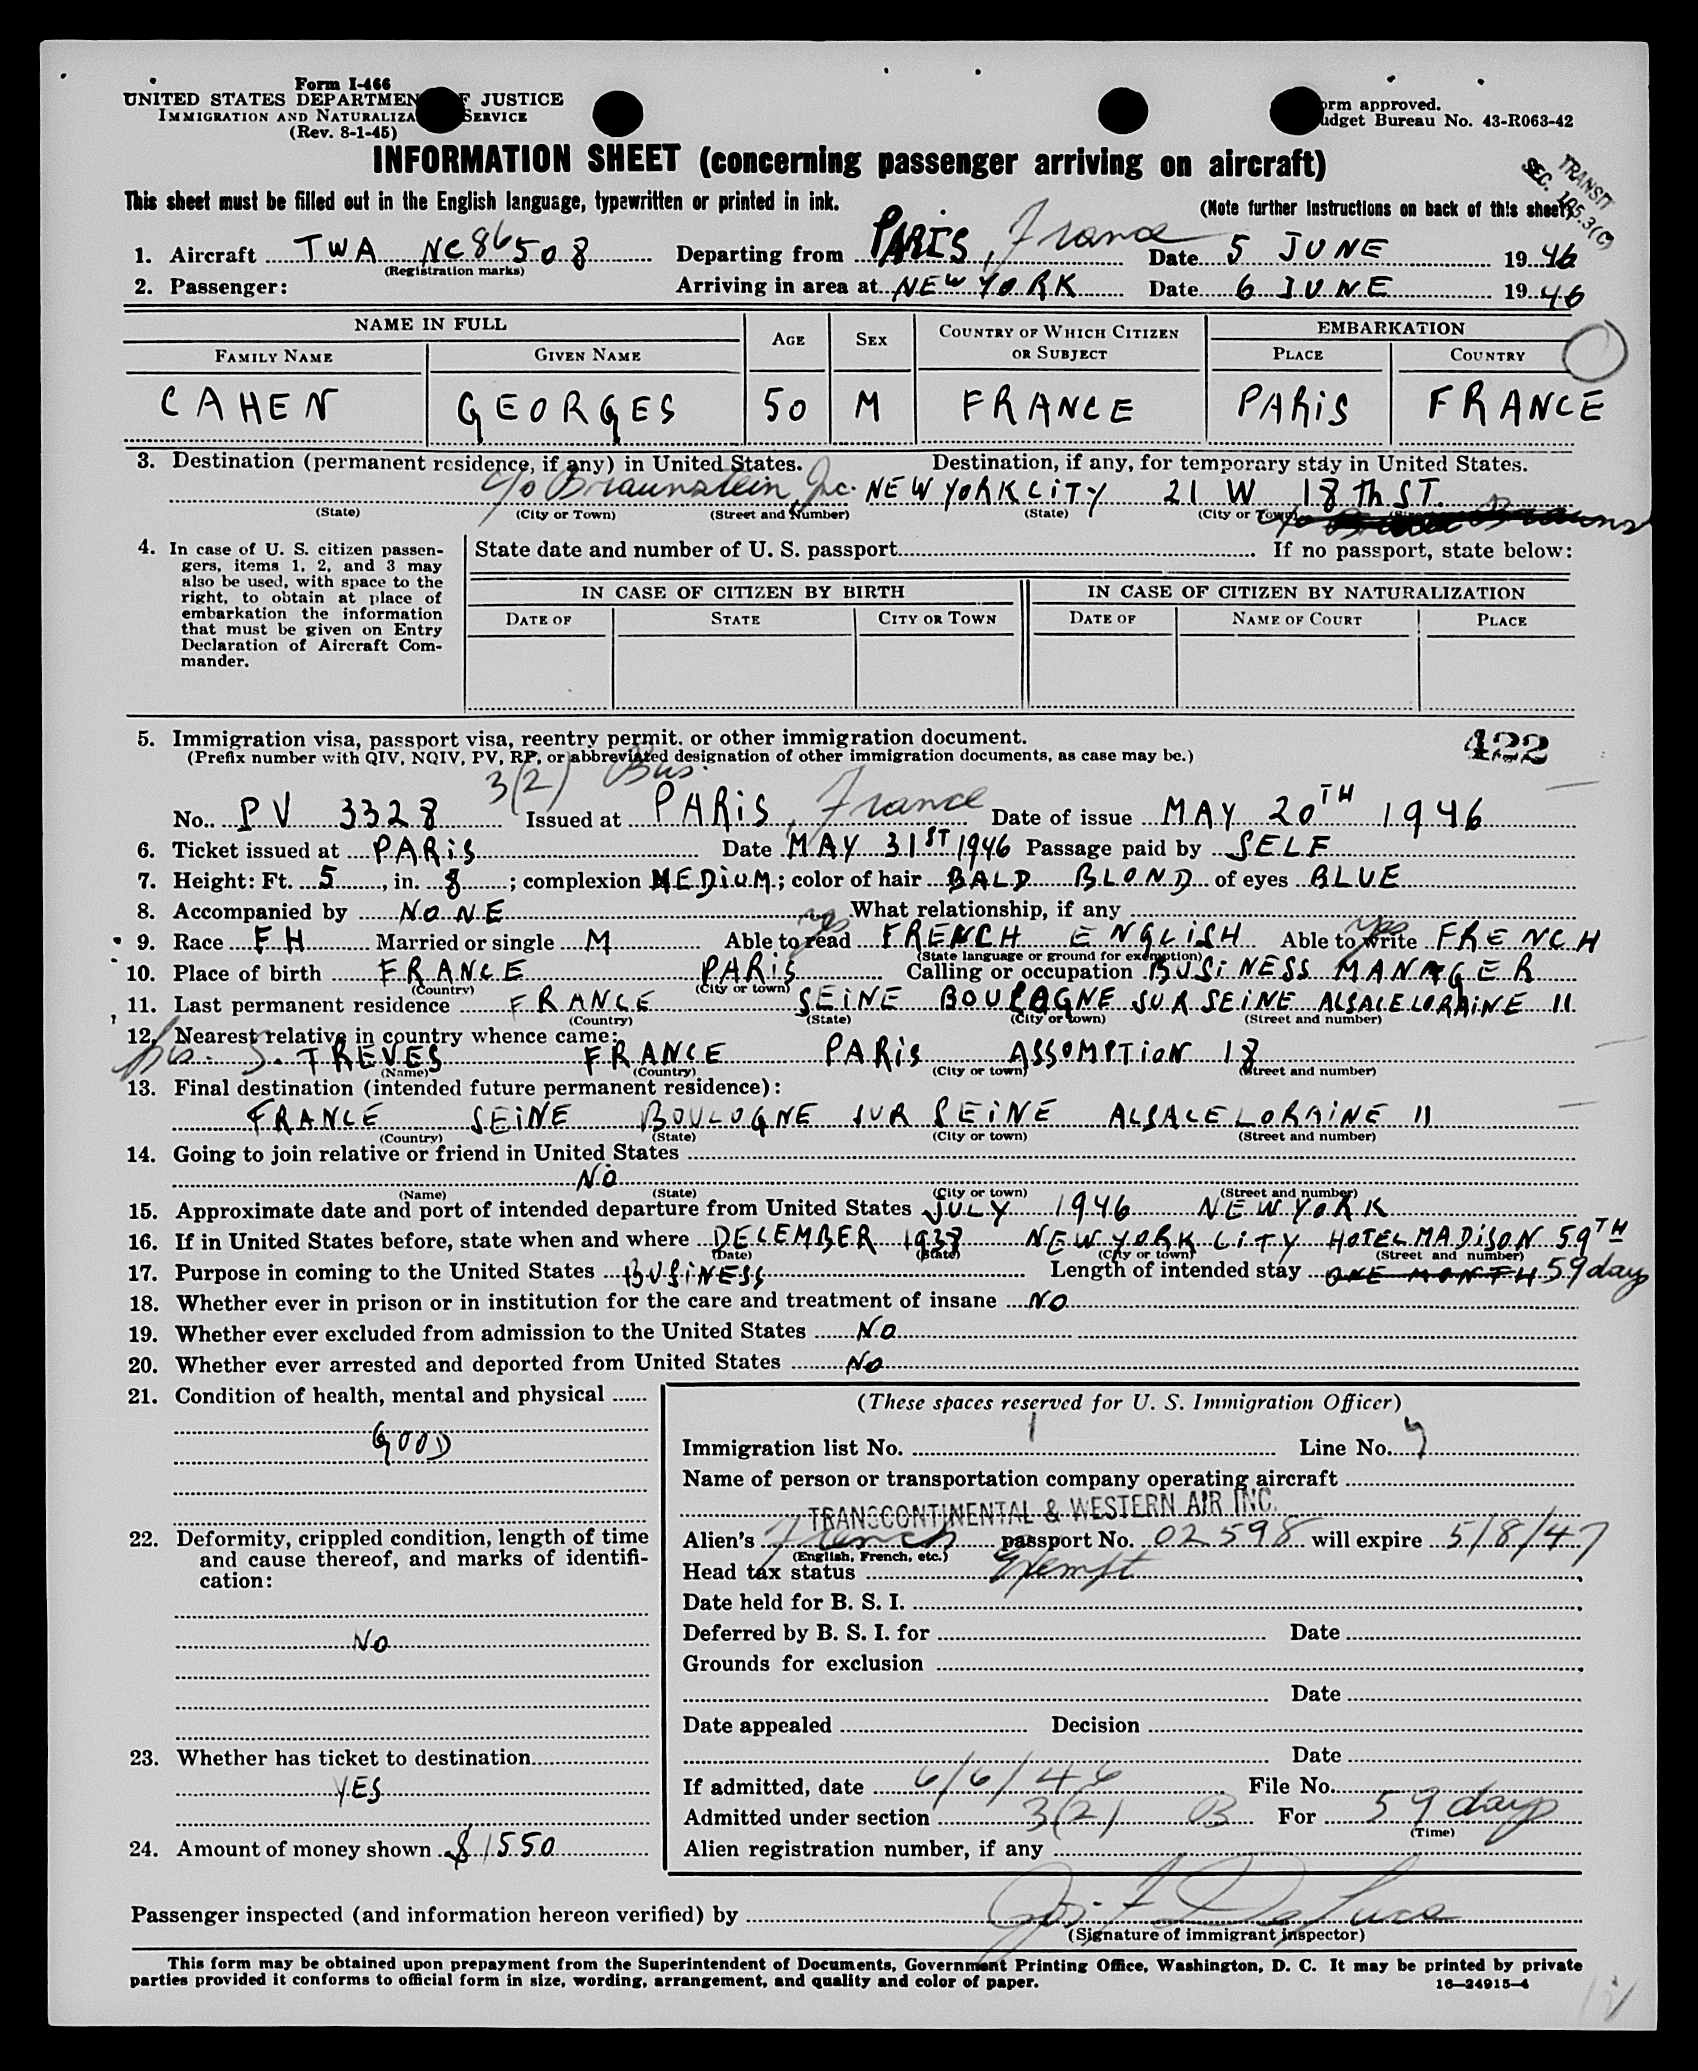 Form I-466
UNITED STATES DEPARTMENT OF JUSTICE
IMMIGRATION AND NATURALIZATION SERVICE
(Rev. 8-1-45)
Form approved.
Budget Bureau No. 43-R063-42
INFORMATION SHEET (concerning passenger arriving on aircraft)
TRANSIT
SEC. 105.3(C)
This sheet must be filled out in the English language, typewritten or printed in ink.
(Note further instructions on back of this sheet)
1. Aircraft TWA NC86508 Departing from PARIS, France Date 5 JUNE 1946
(Registration marks)
2. Passenger: Arriving in area at NEW YORK Date 6 JUNE 1946
NAME IN FULL AGE SEX COUNTRY OF WHICH CITIZEN OR SUBJECT EMBARKATION
FAMILY NAME GIVEN NAME PLACE COUNTRY
CAHEN GEORGES 50 M FRANCE PARIS FRANCE
3. Destination (permanent residence, if any) in United States. Destination, if any, for temporary stay in United States.
c/o Braunstein, Inc. NEW YORK CITY 21 W 18 Th ST.
(State) (City or Town) (Street and Number) (State) (City or Town)
4. In case of U. S. citizen passengers, items 1, 2, and 3 may also be used, with space to the right, to obtain at place of embarkation the information that must be given on Entry Declaration of Aircraft Commander.
State date and number of U. S. passport If no passport, state below:
IN CASE OF CITIZEN BY BIRTH IN CASE OF CITIZEN BY NATURALIZATION
DATE OF STATE CITY OR TOWN DATE OF NAME OF COURT PLACE
5. Immigration visa, passport visa, reentry permit, or other immigration document. 422
(Prefix number with QIV, NQIV, PV, RP, or abbreviated designation of other immigration documents, as case may be.)
3(2) Bus.
No. PV 3328 Issued at PARIS, France Date of issue MAY 20TH 1946
6. Ticket issued at PARIS Date MAY 31ST 1946 Passage paid by SELF
7. Height: Ft. 5, in. 8; complexion MEDIUM; color of hair BALD BLOND of eyes BLUE
8. Accompanied by NONE What relationship, if any
9. Race FH Married or single M Able to read yes FRENCH ENGLISH Able to write yes FRENCH
(State language or ground for exemption)
10. Place of birth FRANCE PARIS Calling or occupation BUSINESS MANAGER
(Country) (City or town)
11. Last permanent residence FRANCE SEINE BOULOGNE SUR SEINE ALSACE LORAINE 11
(Country) (State) (City or town) (Street and number)
12. Nearest relative in country whence came:
TREVES FRANCE PARIS ASSOMPTION 18
(Name) (Country) (City or town) (Street and number)
13. Final destination (intended future permanent residence):
FRANCE SEINE BOULOGNE SUR SEINE ALSACE LORAINE 11
(Country) (State) (City or town) (Street and number)
14. Going to join relative or friend in United States
NO
(Name) (State) (City or town) (Street and number)
15. Approximate date and port of intended departure from United States JULY 1946 NEW YORK
16. If in United States before, state when and where DECEMBER 1938 NEW YORK CITY HOTEL MADISON 59TH
(Date) (State) (City or town) (Street and number)
17. Purpose in coming to the United States BUSINESS Length of intended stay ONE MONTH 59 days
18. Whether ever in prison or in institution for the care and treatment of insane NO
19. Whether ever excluded from admission to the United States NO
20. Whether ever arrested and deported from United States NO
21. Condition of health, mental and physical
GOOD
22. Deformity, crippled condition, length of time and cause thereof, and marks of identification:
NO
23. Whether has ticket to destination
YES
24. Amount of money shown $1550
(These spaces reserved for U. S. Immigration Officer)
Immigration list No. 1 Line No. 9
Name of person or transportation company operating aircraft
TRANSCONTINENTAL & WESTERN AIR INC.
Alien's French passport No. 02598 will expire 5/8/47
(English, French, etc.)
Head tax status Exempt
Date held for B. S. I.
Deferred by B. S. I. for Date
Grounds for exclusion
Date
Date appealed Decision
Date
If admitted, date 6/6/46 File No.
Admitted under section 3(2) B For 59 days
(Time)
Alien registration number, if any
Passenger inspected (and information hereon verified) by
(Signature of immigrant inspector)
This form may be obtained upon prepayment from the Superintendent of Documents, Government Printing Office, Washington, D. C. It may be printed by private
parties provided it conforms to official form in size, wording, arrangement, and quality and color of paper. 16-24915-4